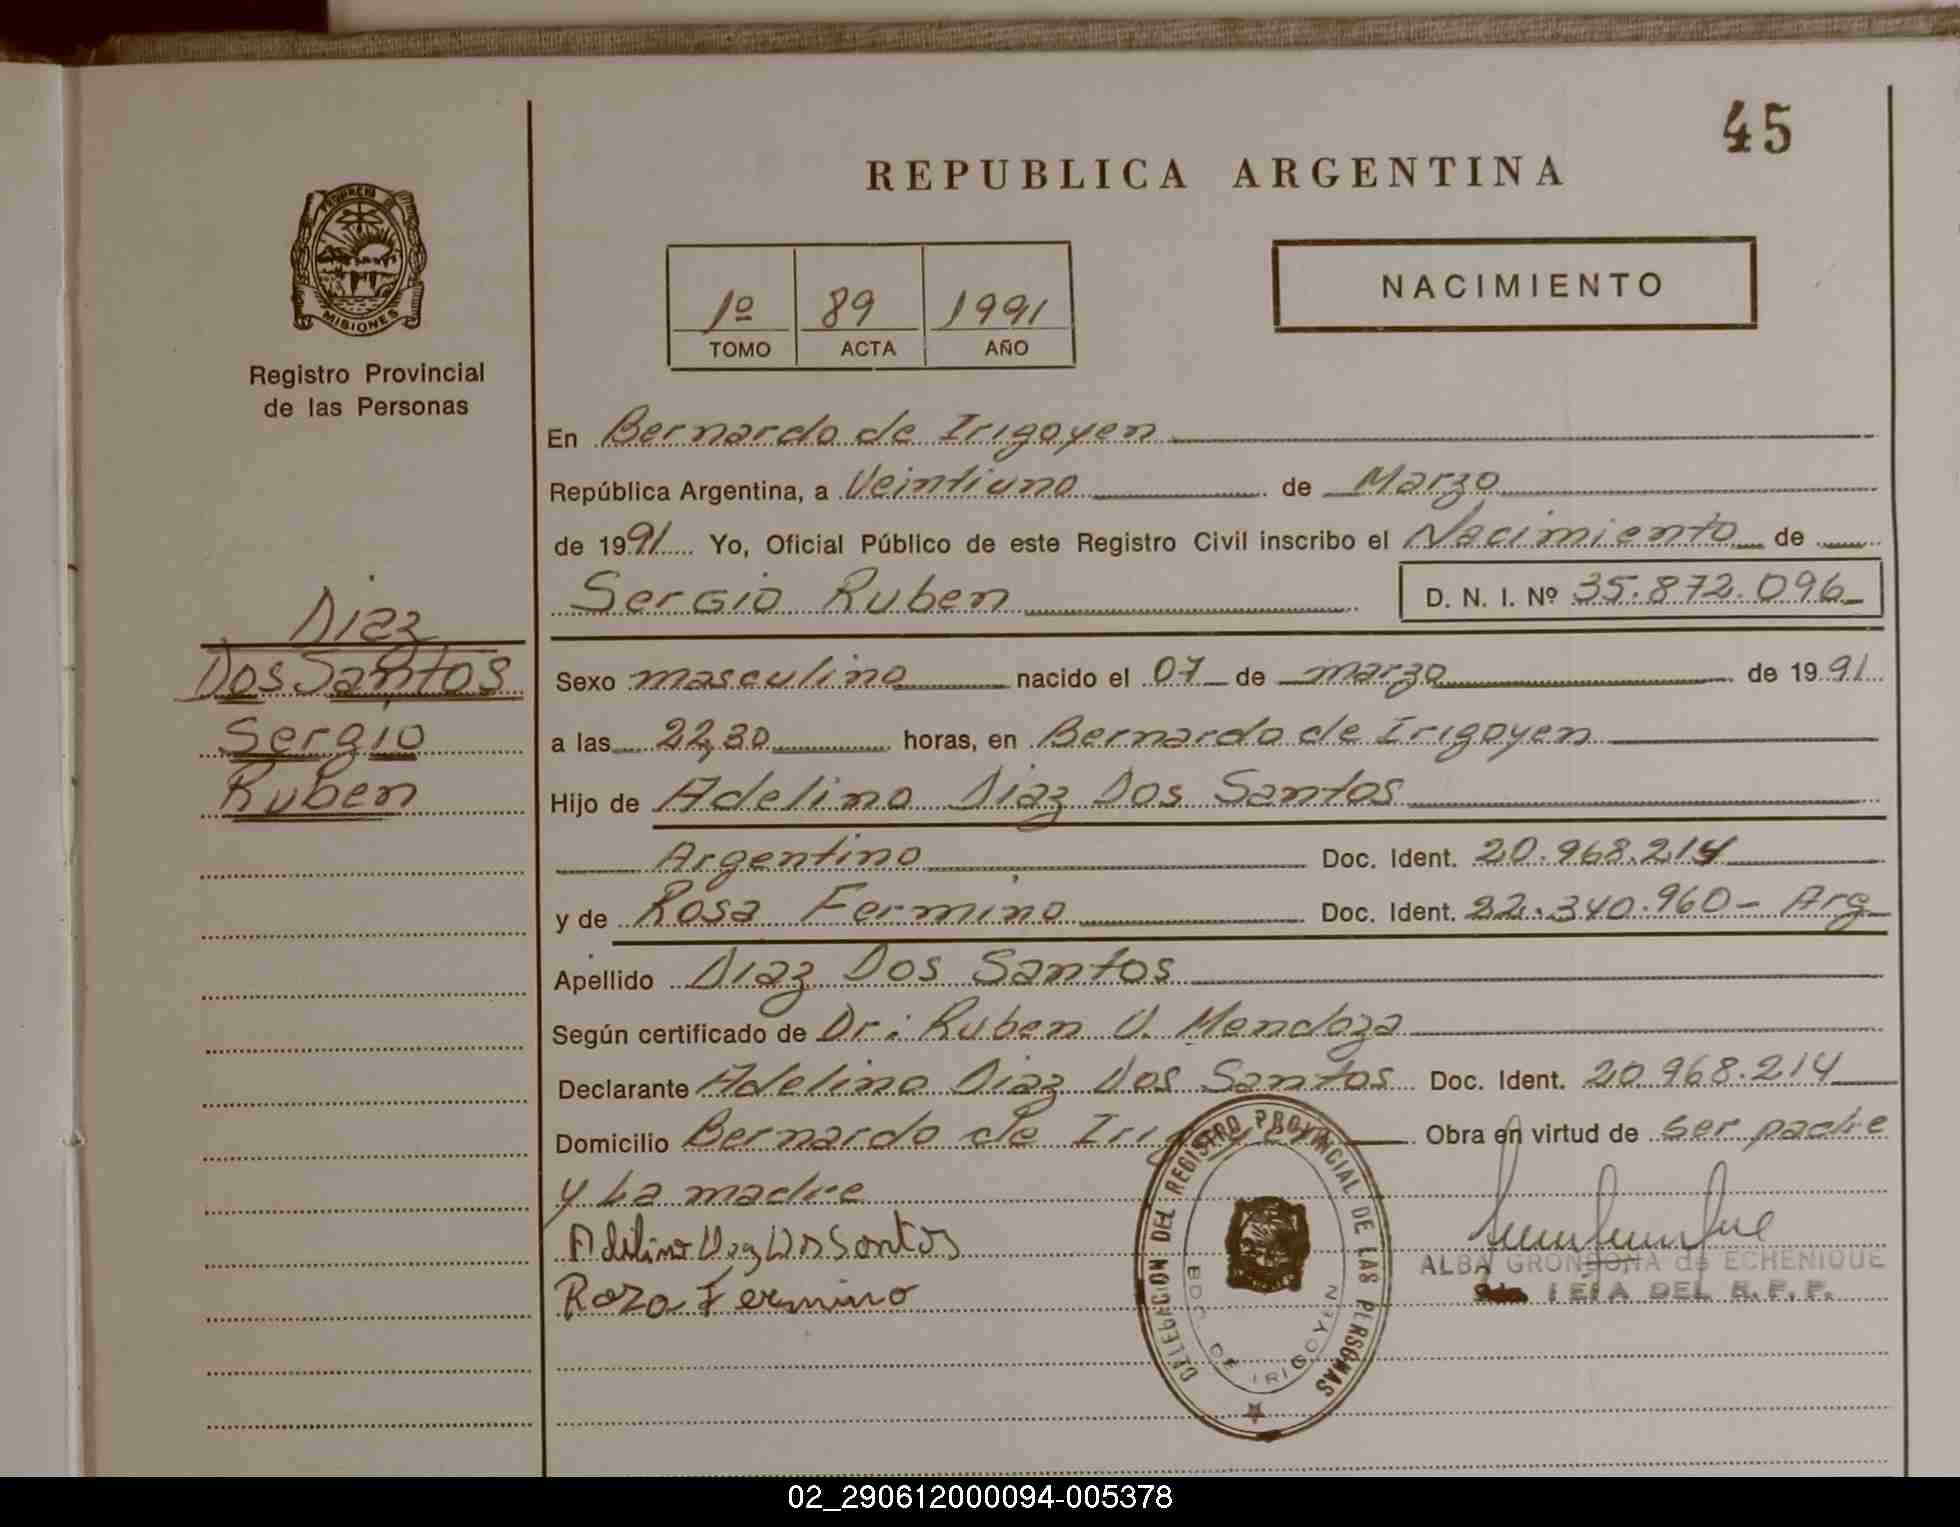 45
REPUBLICA ARGENTINA
PROVINCIA DE
MISIONES
Registro Provincial
de las Personas
1º 89 1991
TOMO ACTA AÑO
NACIMIENTO
Diaz
Dos Santos
Sergio
Ruben
En Bernardo de Irigoyen
República Argentina, a Veintiuno de Marzo
de 1991 Yo, Oficial Público de este Registro Civil inscribo el Nacimiento de
Sergio Ruben D. N. I. Nº 35.872.096
Sexo masculino nacido el 07 de marzo de 1991
a las 22,30 horas, en Bernardo de Irigoyen
Hijo de Adelino Diaz Dos Santos
Argentino Doc. Ident. 20.968.214
y de Rosa Fermino Doc. Ident. 22.340.960 - Arg
Apellido Diaz Dos Santos
Según certificado de Dr: Ruben O. Mendoza
Declarante Adelino Diaz Dos Santos Doc. Ident. 20.968.214
Domicilio Bernardo de Irigoyen Obra en virtud de ser padre
y La madre
Adelino Diaz Dos Santos
Roza Fermino
DELEGACION DEL REGISTRO PROVINCIAL DE LAS PERSONAS
BDO. DE IRIGOYEN
ALBA GRONDONA de ECHENIQUE
DEL R. P. P.
02_290612000094-005378